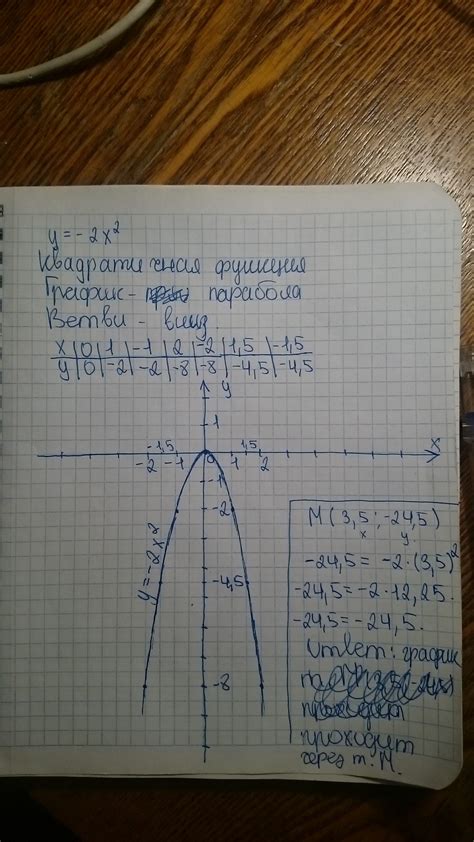 y = -2x²
Квадратичная функция
График - парабола
Ветви - вниз.
x | 0 | 1 | -1 | 2 | -2 | 1,5 | -1,5
y | 0 | -2 | -2 | -8 | -8 | -4,5 | -4,5
y
1
-1,5 1,5 x
-2 -1 0 1 2
-1
-2
-4,5
-8
y = -2x²
M (3,5 ; -24,5)
x y
-24,5 = -2·(3,5)²
-24,5 = -2·12,25.
-24,5 = -24,5.
Ответ: график
проходит
через т. М.